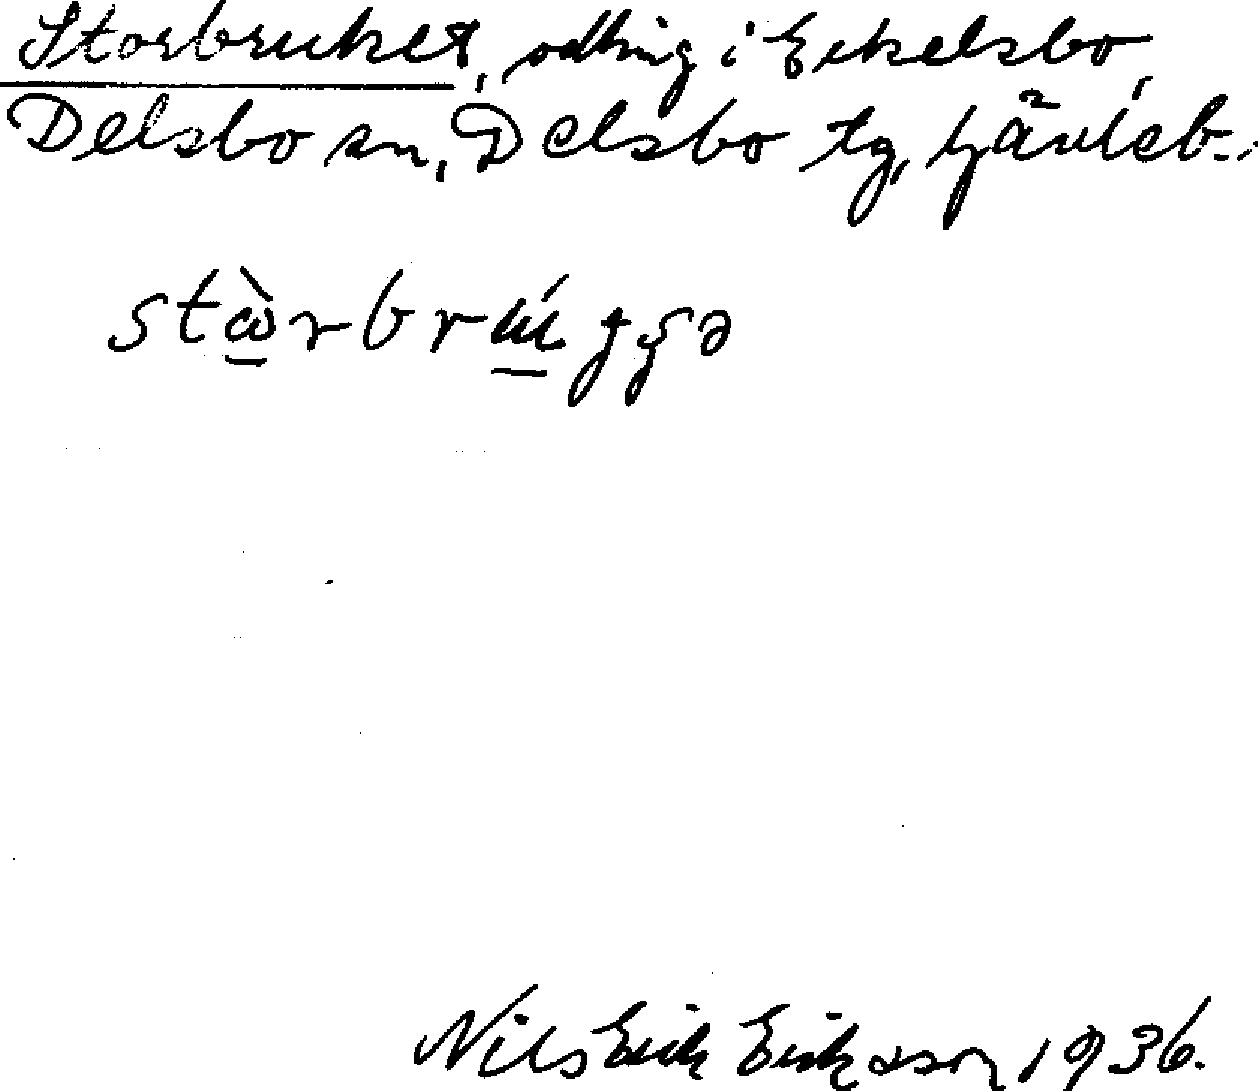 Storbruket, odling i Eckelsbo,
Delsbo sn, Delsbo tg, Gävleb.
Nils Erik Eriksson 1936.